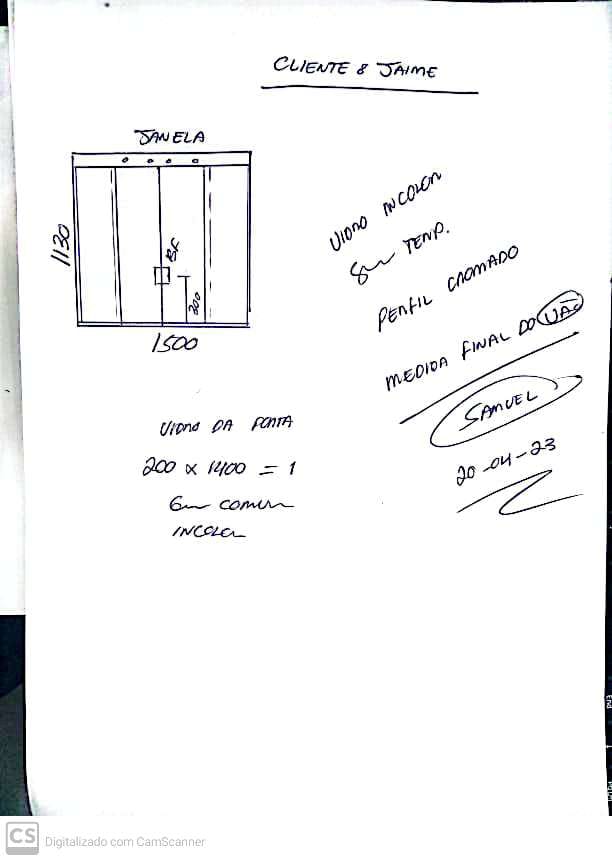 CLIENTE : JAIME
JANELA
1130
BF
200
1500
VIDRO INCOLOR
8mm TEMP.
PERFIL CROMADO
MEDIDA FINAL DO VÃO
SAMUEL
20-04-23
VIDRO DA PORTA
200 x 1400 = 1
6mm COMUM
INCOLOR
CS Digitalizado com CamScanner